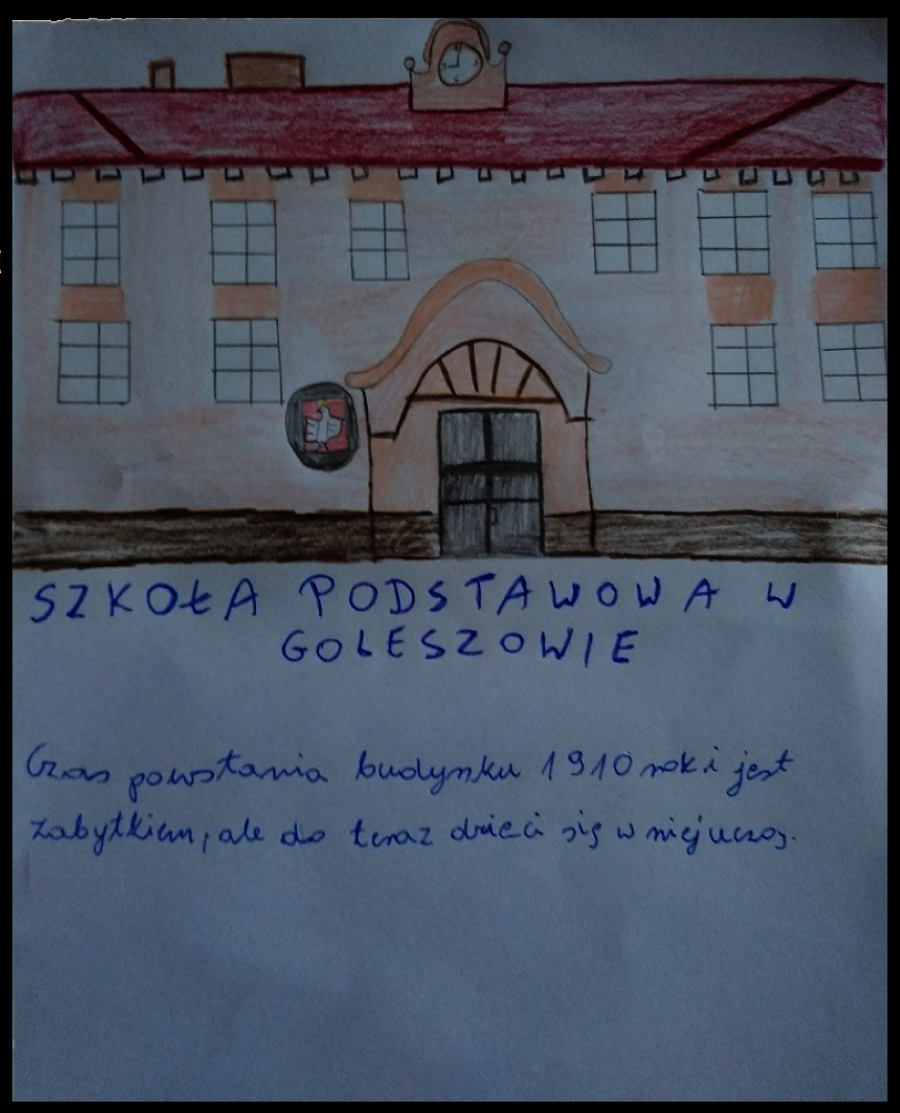 SZKOŁA PODSTAWOWA W
GOLESZOWIE
Czas powstania budynku 1910 rok i jest
zabytkiem, ale do teraz dzieci się w niej uczą.